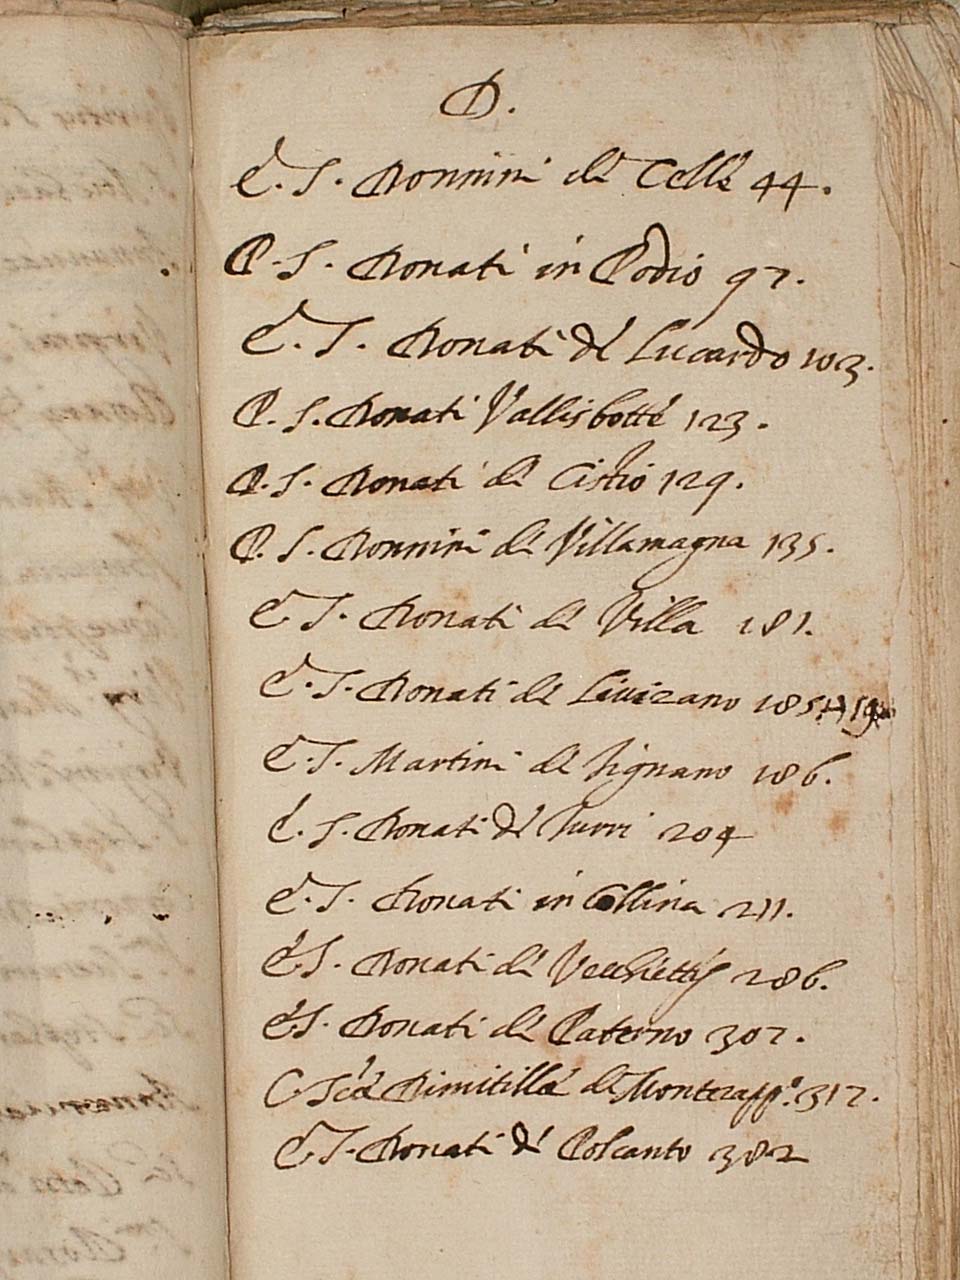 D.
E. S. Donnini de Celle 44.
P. S. Donati in Podio 97.
E. S. Donati de Lucardo 103.
P. S. Donati Vallisbotte 123.
P. S. Donati de Cistio 129.
P. S. Donnini de Villamagna 135.
E S. Donati de Villa 181.
E. S. Donati de Livizano 185
E S. Martini de Signano 186.
E. S. Donati de Turri 204
E. S. Donati in Collina 211.
E S. Donati de Vecchiettis 286.
E S. Donati de Paterno 307.
C Scē Dimitille de Monterapp.º 317.
E S. Donati de Polcanto 382